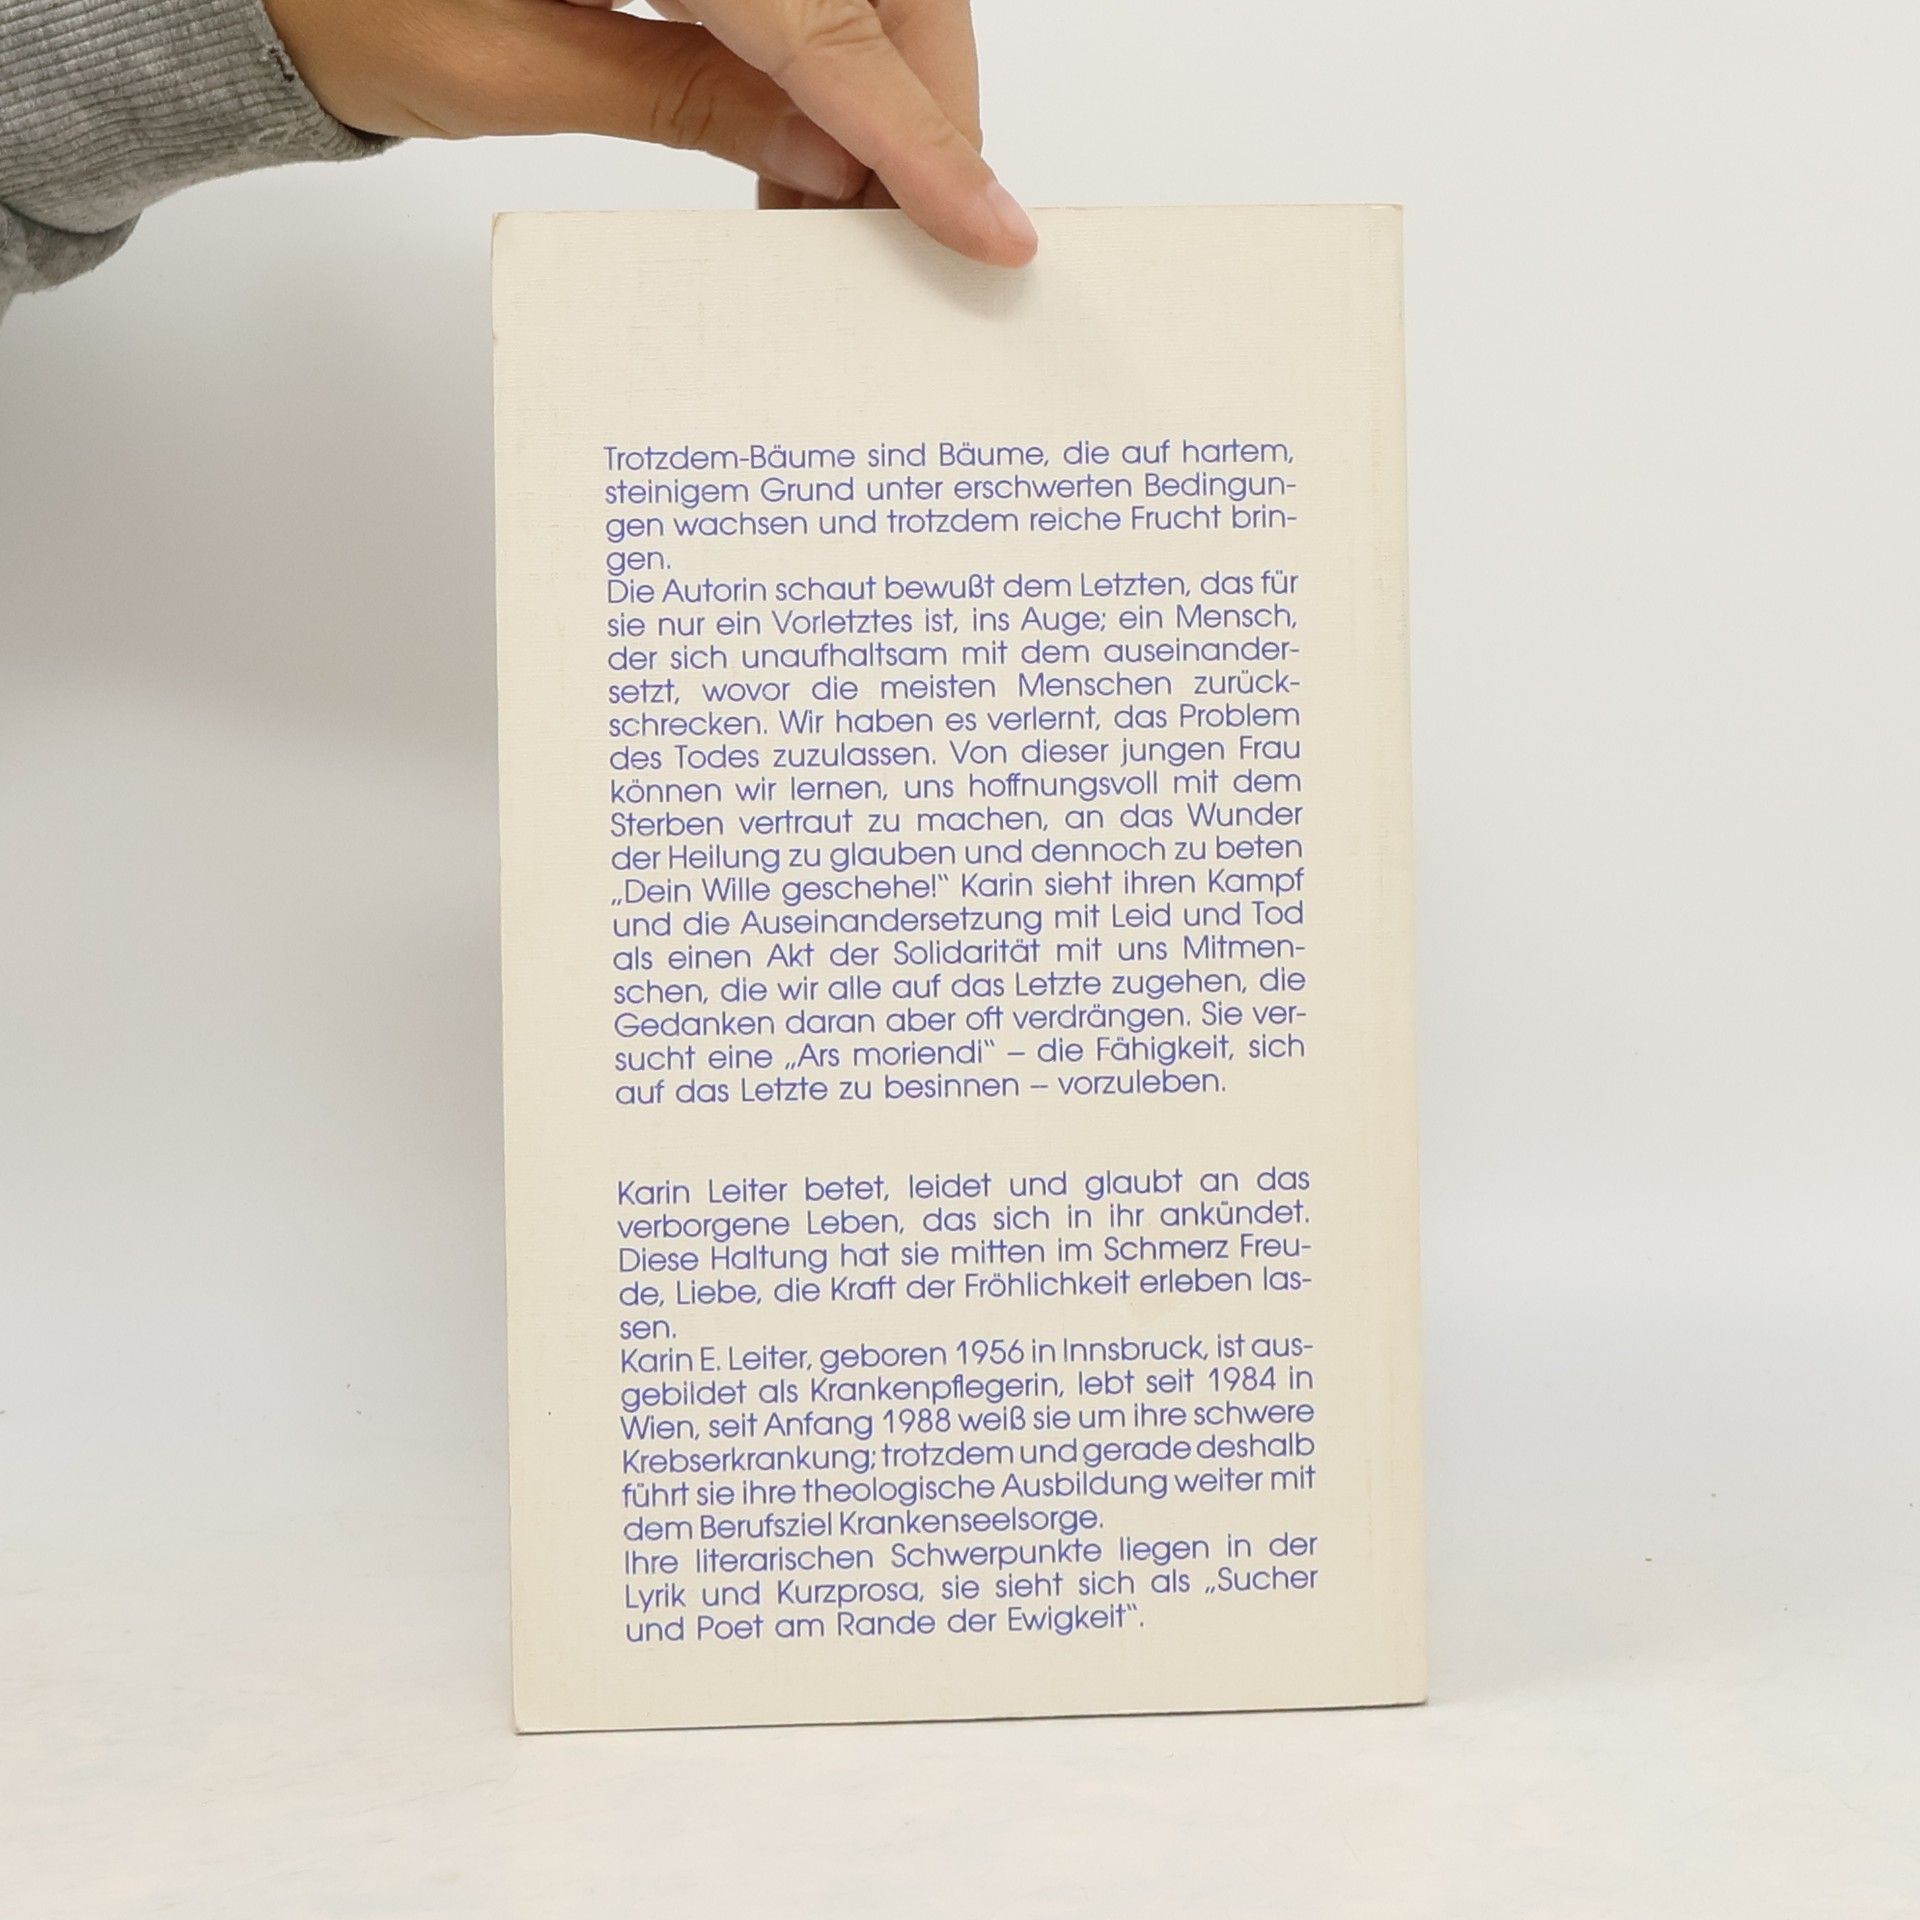 Trotzdem-Bäume sind Bäume, die auf hartem,
steinigem Grund unter erschwerten Bedingun-
gen wachsen und trotzdem reiche Frucht brin-
gen.
Die Autorin schaut bewußt dem Letzten, das für
sie nur ein Vorletztes ist, ins Auge; ein Mensch,
der sich unaufhaltsam mit dem auseinander-
setzt, wovor die meisten Menschen zurück-
schrecken. Wir haben es verlernt, das Problem
des Todes zuzulassen. Von dieser jungen Frau
können wir lernen, uns hoffnungsvoll mit dem
Sterben vertraut zu machen, an das Wunder
der Heilung zu glauben und dennoch zu beten
„Dein Wille geschehe!“ Karin sieht ihren Kampf
und die Auseinandersetzung mit Leid und Tod
als einen Akt der Solidarität mit uns Mitmen-
schen, die wir alle auf das Letzte zugehen, die
Gedanken daran aber oft verdrängen. Sie ver-
sucht eine „Ars moriendi“ – die Fähigkeit, sich
auf das Letzte zu besinnen – vorzuleben.
Karin Leiter betet, leidet und glaubt an das
verborgene Leben, das sich in ihr ankündet.
Diese Haltung hat sie mitten im Schmerz Freu-
de, Liebe, die Kraft der Fröhlichkeit erleben las-
sen.
Karin E. Leiter, geboren 1956 in Innsbruck, ist aus-
gebildet als Krankenpflegerin, lebt seit 1984 in
Wien, seit Anfang 1988 weiß sie um ihre schwere
Krebserkrankung; trotzdem und gerade deshalb
führt sie ihre theologische Ausbildung weiter mit
dem Berufsziel Krankenseelsorge.
Ihre literarischen Schwerpunkte liegen in der
Lyrik und Kurzprosa, sie sieht sich als „Sucher
und Poet am Rande der Ewigkeit“.